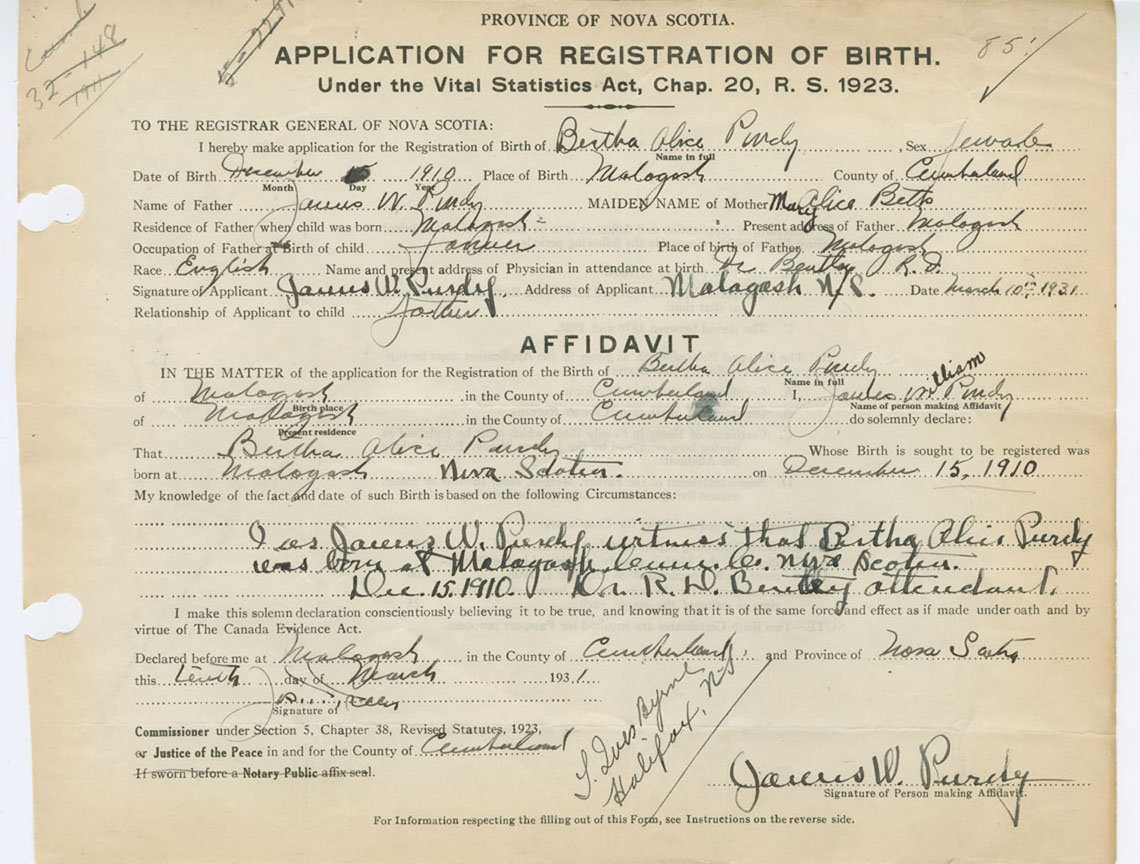 PROVINCE OF NOVA SCOTIA.
APPLICATION FOR REGISTRATION OF BIRTH.
Under the Vital Statistics Act, Chap. 20, R. S. 1923.
32-148
1911
85
TO THE REGISTRAR GENERAL OF NOVA SCOTIA:
I hereby make application for the Registration of Birth of Bertha Alice Purdy, Sex Female
Name in full
Date of Birth December 15 1910 Place of Birth Malagash County of Cumberland
Month Day Year
Name of Father James W. Purdy MAIDEN NAME of Mother Mary Alice Betts
Residence of Father when child was born Malagash Present address of Father Malagash
Occupation of Father at Birth of child Farmer Place of birth of Father Malagash
Race English Name and present address of Physician in attendance at birth Dr Bentley R. D.
Signature of Applicant James W. Purdy, Address of Applicant Malagash N/S. Date March 10th 1931
Relationship of Applicant to child Father
AFFIDAVIT
IN THE MATTER of the application for the Registration of the Birth of Bertha Alice Purdy
Name in full
of Malagash in the County of Cumberland I, James William Purdy
Birth place
Name of person making Affidavit
of Malagash in the County of Cumberland do solemnly declare:
Present residence
That Bertha Alice Purdy Whose Birth is sought to be registered was
born at Malagash Nova Scotia. on December 15, 1910
My knowledge of the fact and date of such Birth is based on the following Circumstances:
I as James W. Purdy witness that Bertha Alice Purdy
was born at Malagash Co. Nova Scotia.
Dec. 15. 1910. Dr. R. D. Bentley attendant.
I make this solemn declaration conscientiously believing it to be true, and knowing that it is of the same force and effect as if made under oath and by
virtue of The Canada Evidence Act.
Declared before me at Malagash in the County of Cumberland, and Province of Nova Scotia
this tenth day of March 1931
Signature of
Commissioner under Section 5, Chapter 38, Revised Statutes, 1923,
or Justice of the Peace in and for the County of Cumberland
If sworn before a Notary Public affix seal.
Byrne
Halifax, NS
James W. Purdy
Signature of Person making Affidavit.
For Information respecting the filling out of this Form, see Instructions on the reverse side.